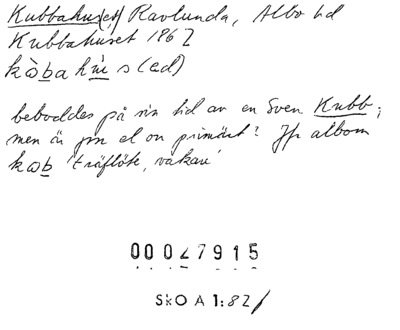 Kubbahus(et) Ravlunda, Albo hd
Kubbahuset 1862
kòba hus(ed)
beboddes på sin tid av en Sven Kubb;
men är pn el on primärt? Jfr albom
kob 'träflöte, vakare'
00027915
SkO A 1:82